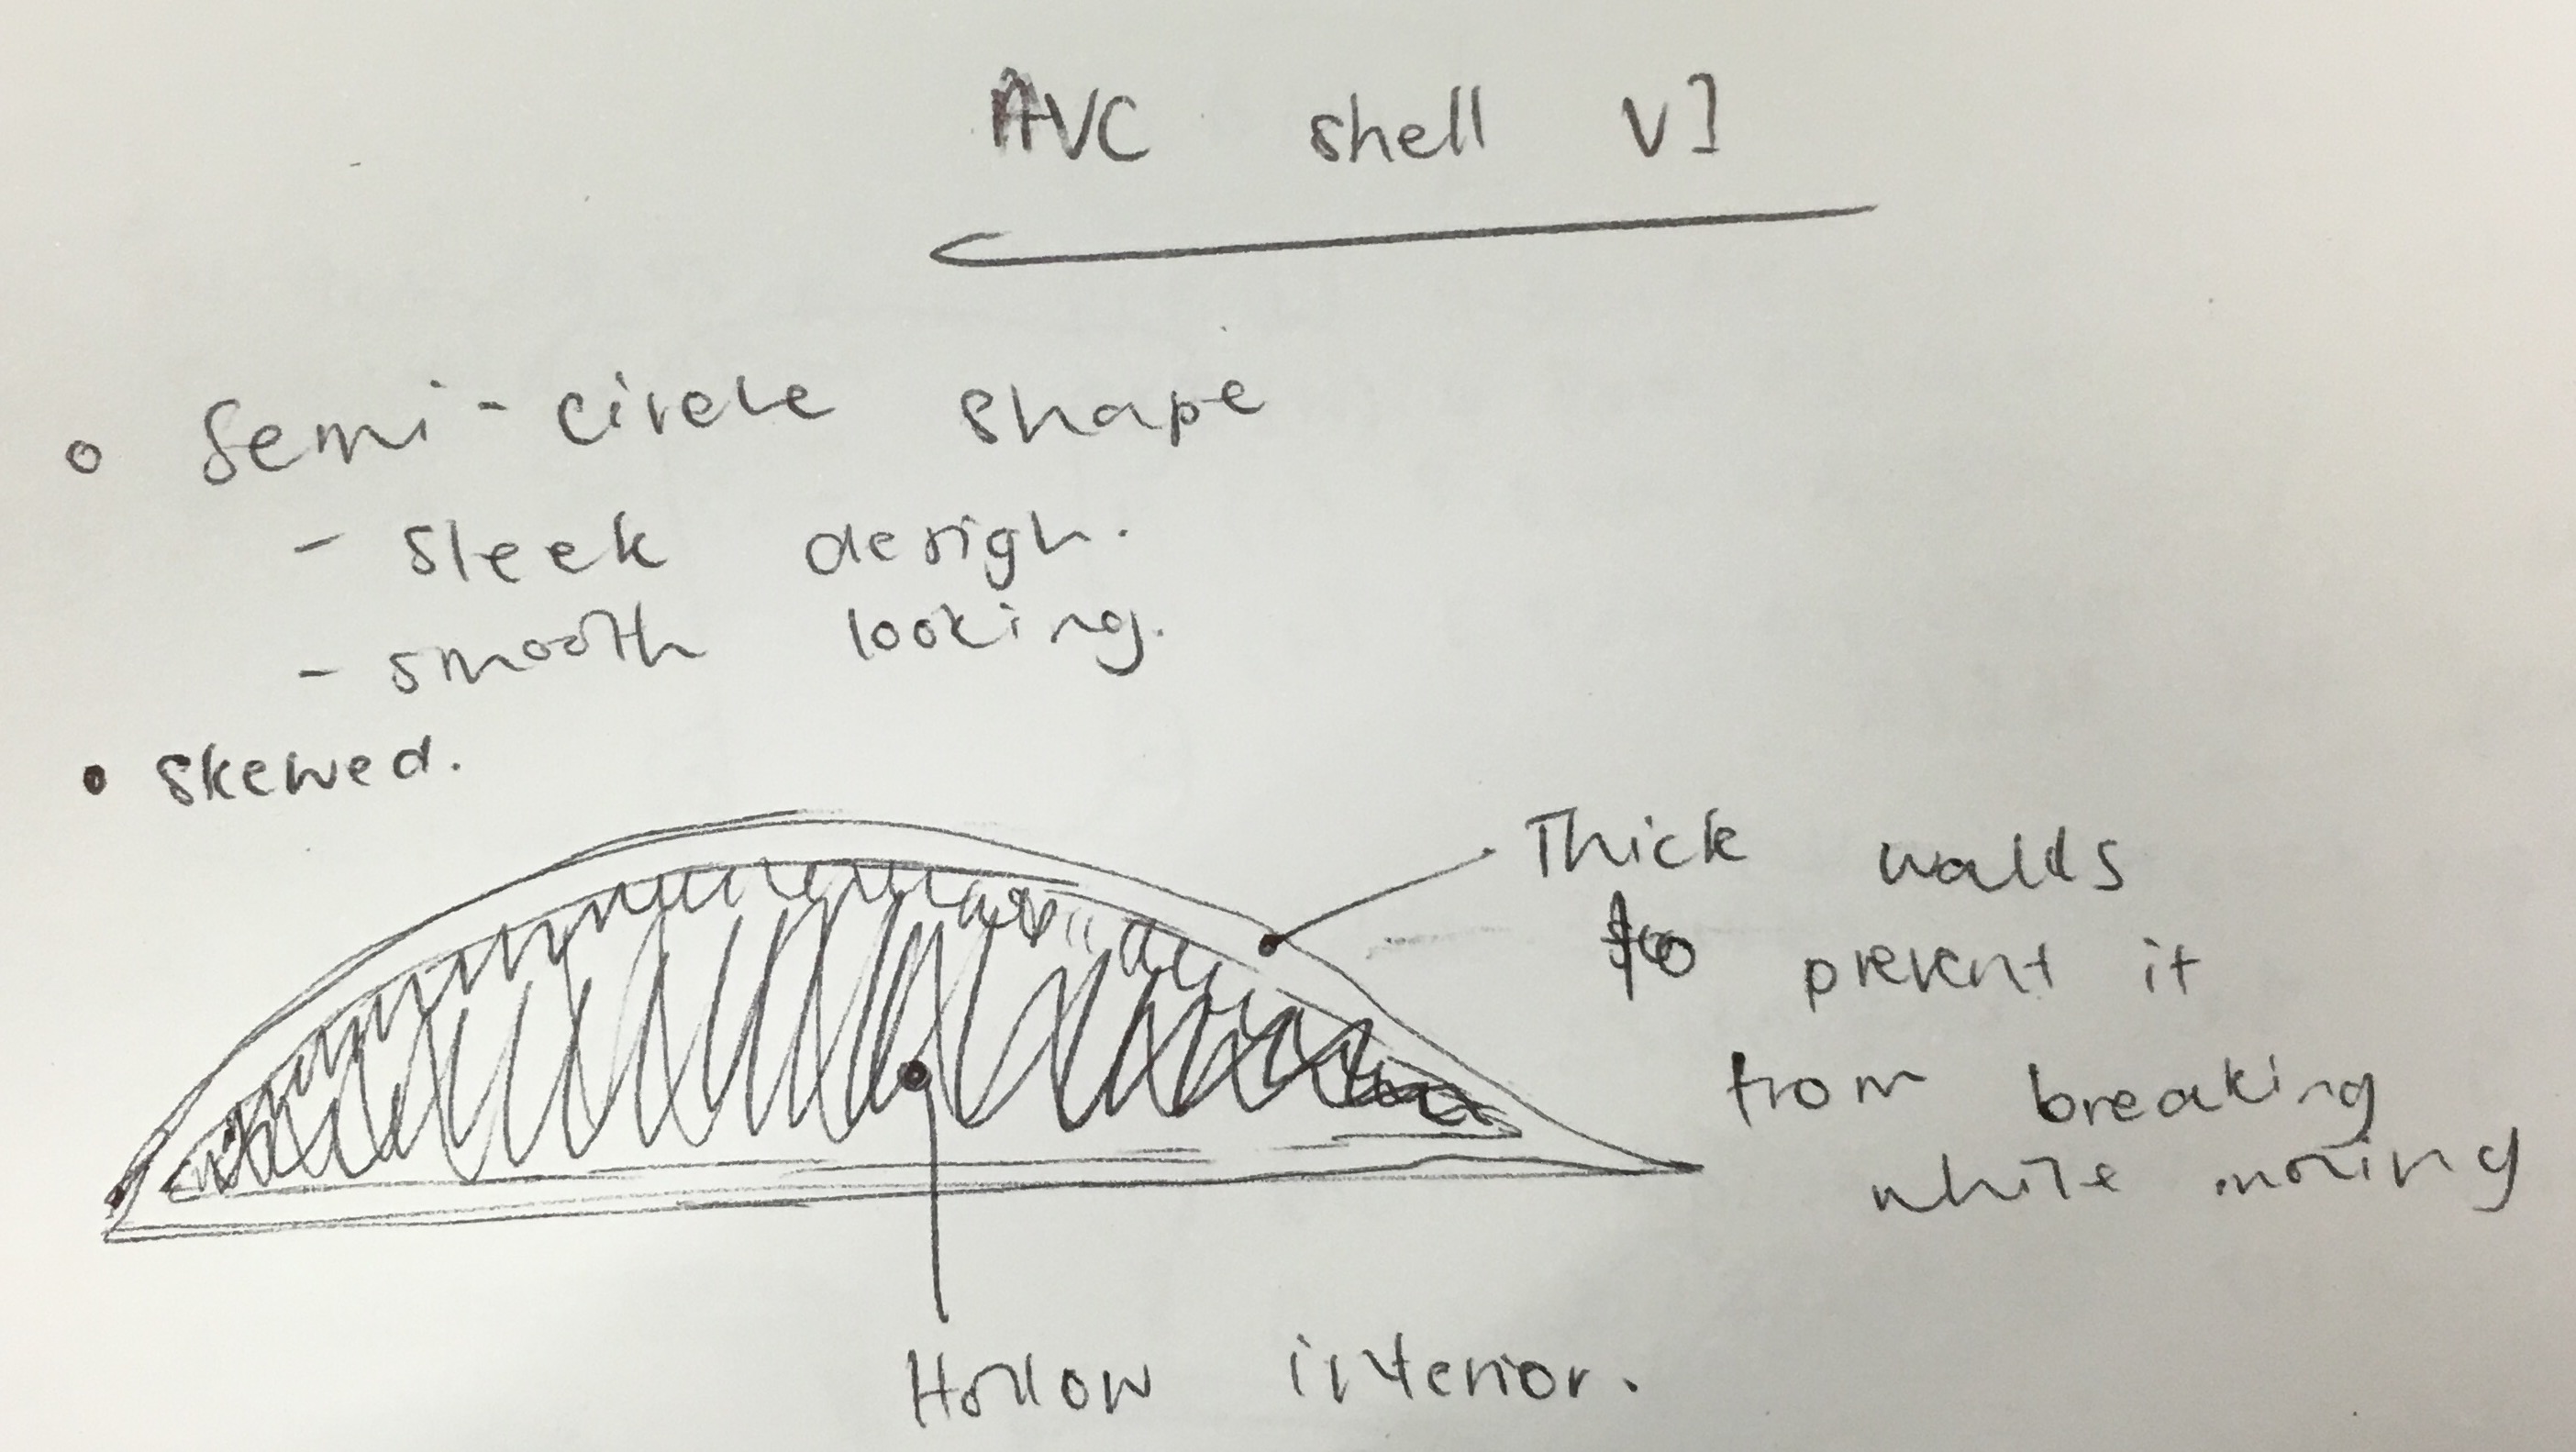 AVC shell V1
Semi-circle shape
- sleek design.
- smooth looking.
• skewed.
Thick walls
to prevent it
from breaking
while moving
Hollow interior.